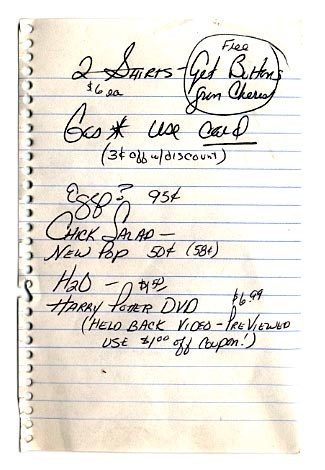 2 SHIRTS - Free Get Buttons
$6 ea from Cheries
Gas * use card
(3¢ off w/discount)
Eggs? 95¢
CHICK SALAD -
NEW POP 50¢ (58¢)
H2O -
HARRY POTTER DVD $6.99
(HELD BACK VIDEO - PREVIEWED
USE $1.00 off Coupon!)